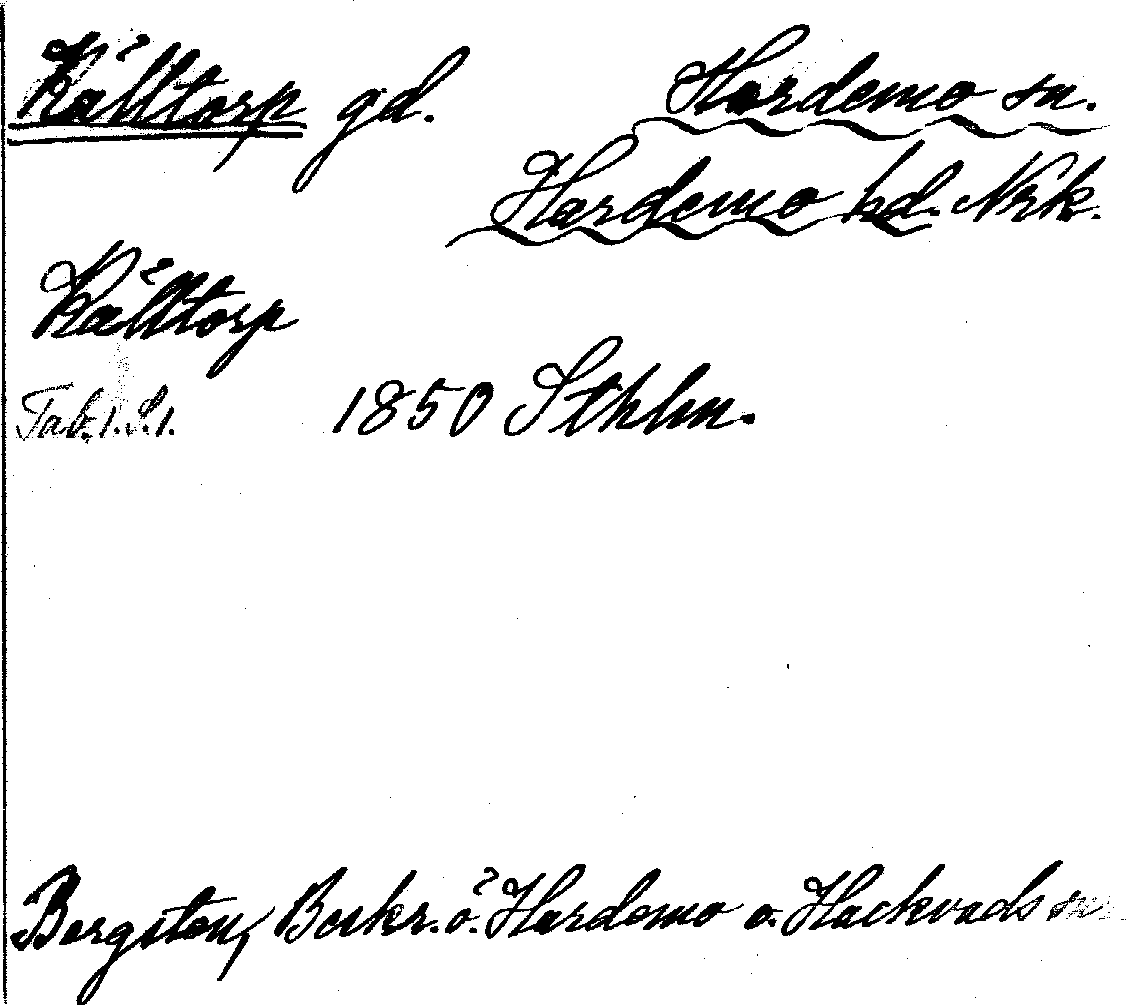 Källtorp gd. Hardemo sn.
Hardemo hd. Nrk.
Källtorp
Tab. 1. S. 1. 1850 Sthlm.
Bergsten, Beskr. ö. Hardemo o. Hackvads sn